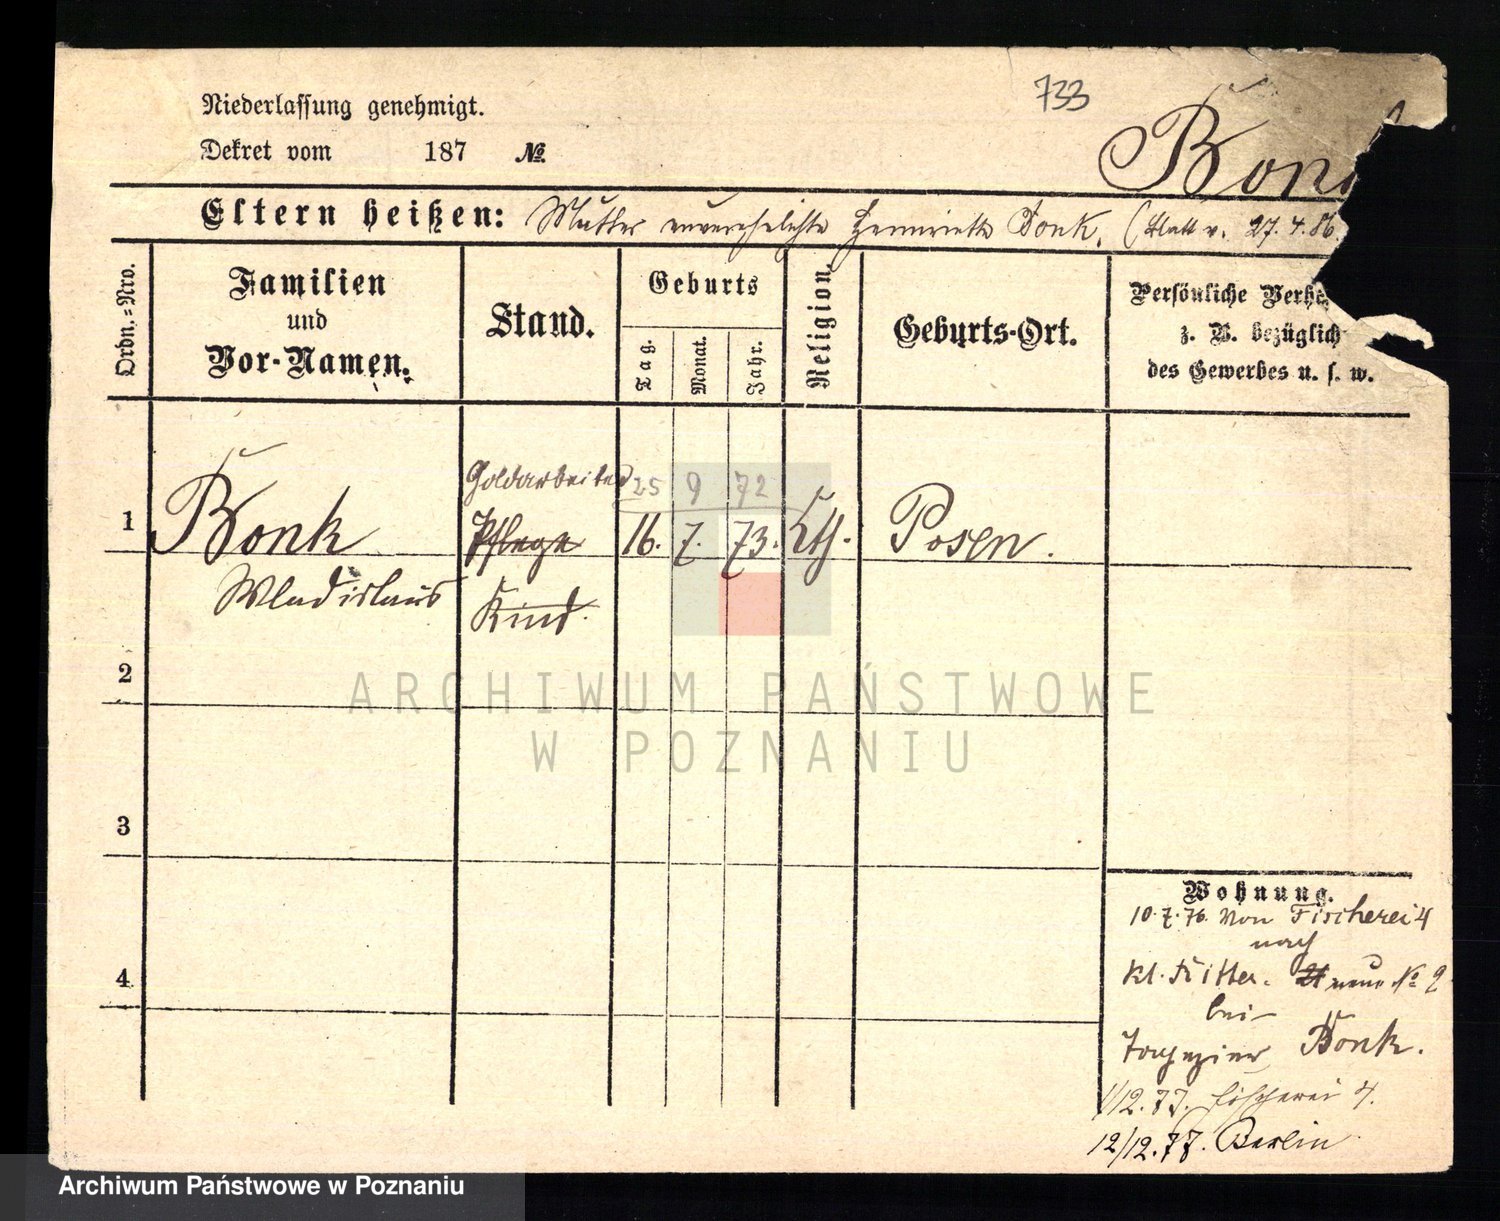 733
Niederlassung genehmigt.
Dekret vom 187 №
Bon
Eltern heißen: Mutter unverehelichte Henriette Bonk. (Blatt v. 27.4.86.
Ordn.=Nro.
Familien
und
Vor-Namen.
Stand.
Geburts
Tag.
Monat.
Jahr.
Religion.
Geburts-Ort.
Persönliche Verh
z. B. bezüglich
des Gewerbes u. s. w.
Goldarbeiter 25 9 72
1 Bonk Pflege 16. 7. 73. Kth. Posen.
Wladislaus Kind.
2
ARCHIWUM PAŃSTWOWE
W POZNANIU
3
4
Wohnung.
10.7.76. Von Fischerei 4
nach
Kl. Ritter. 21 neue No 2
bei
Tapezier Bonk.
1/12.77. Fischerei 4.
12/12.77. Berlin
Archiwum Państwowe w Poznaniu